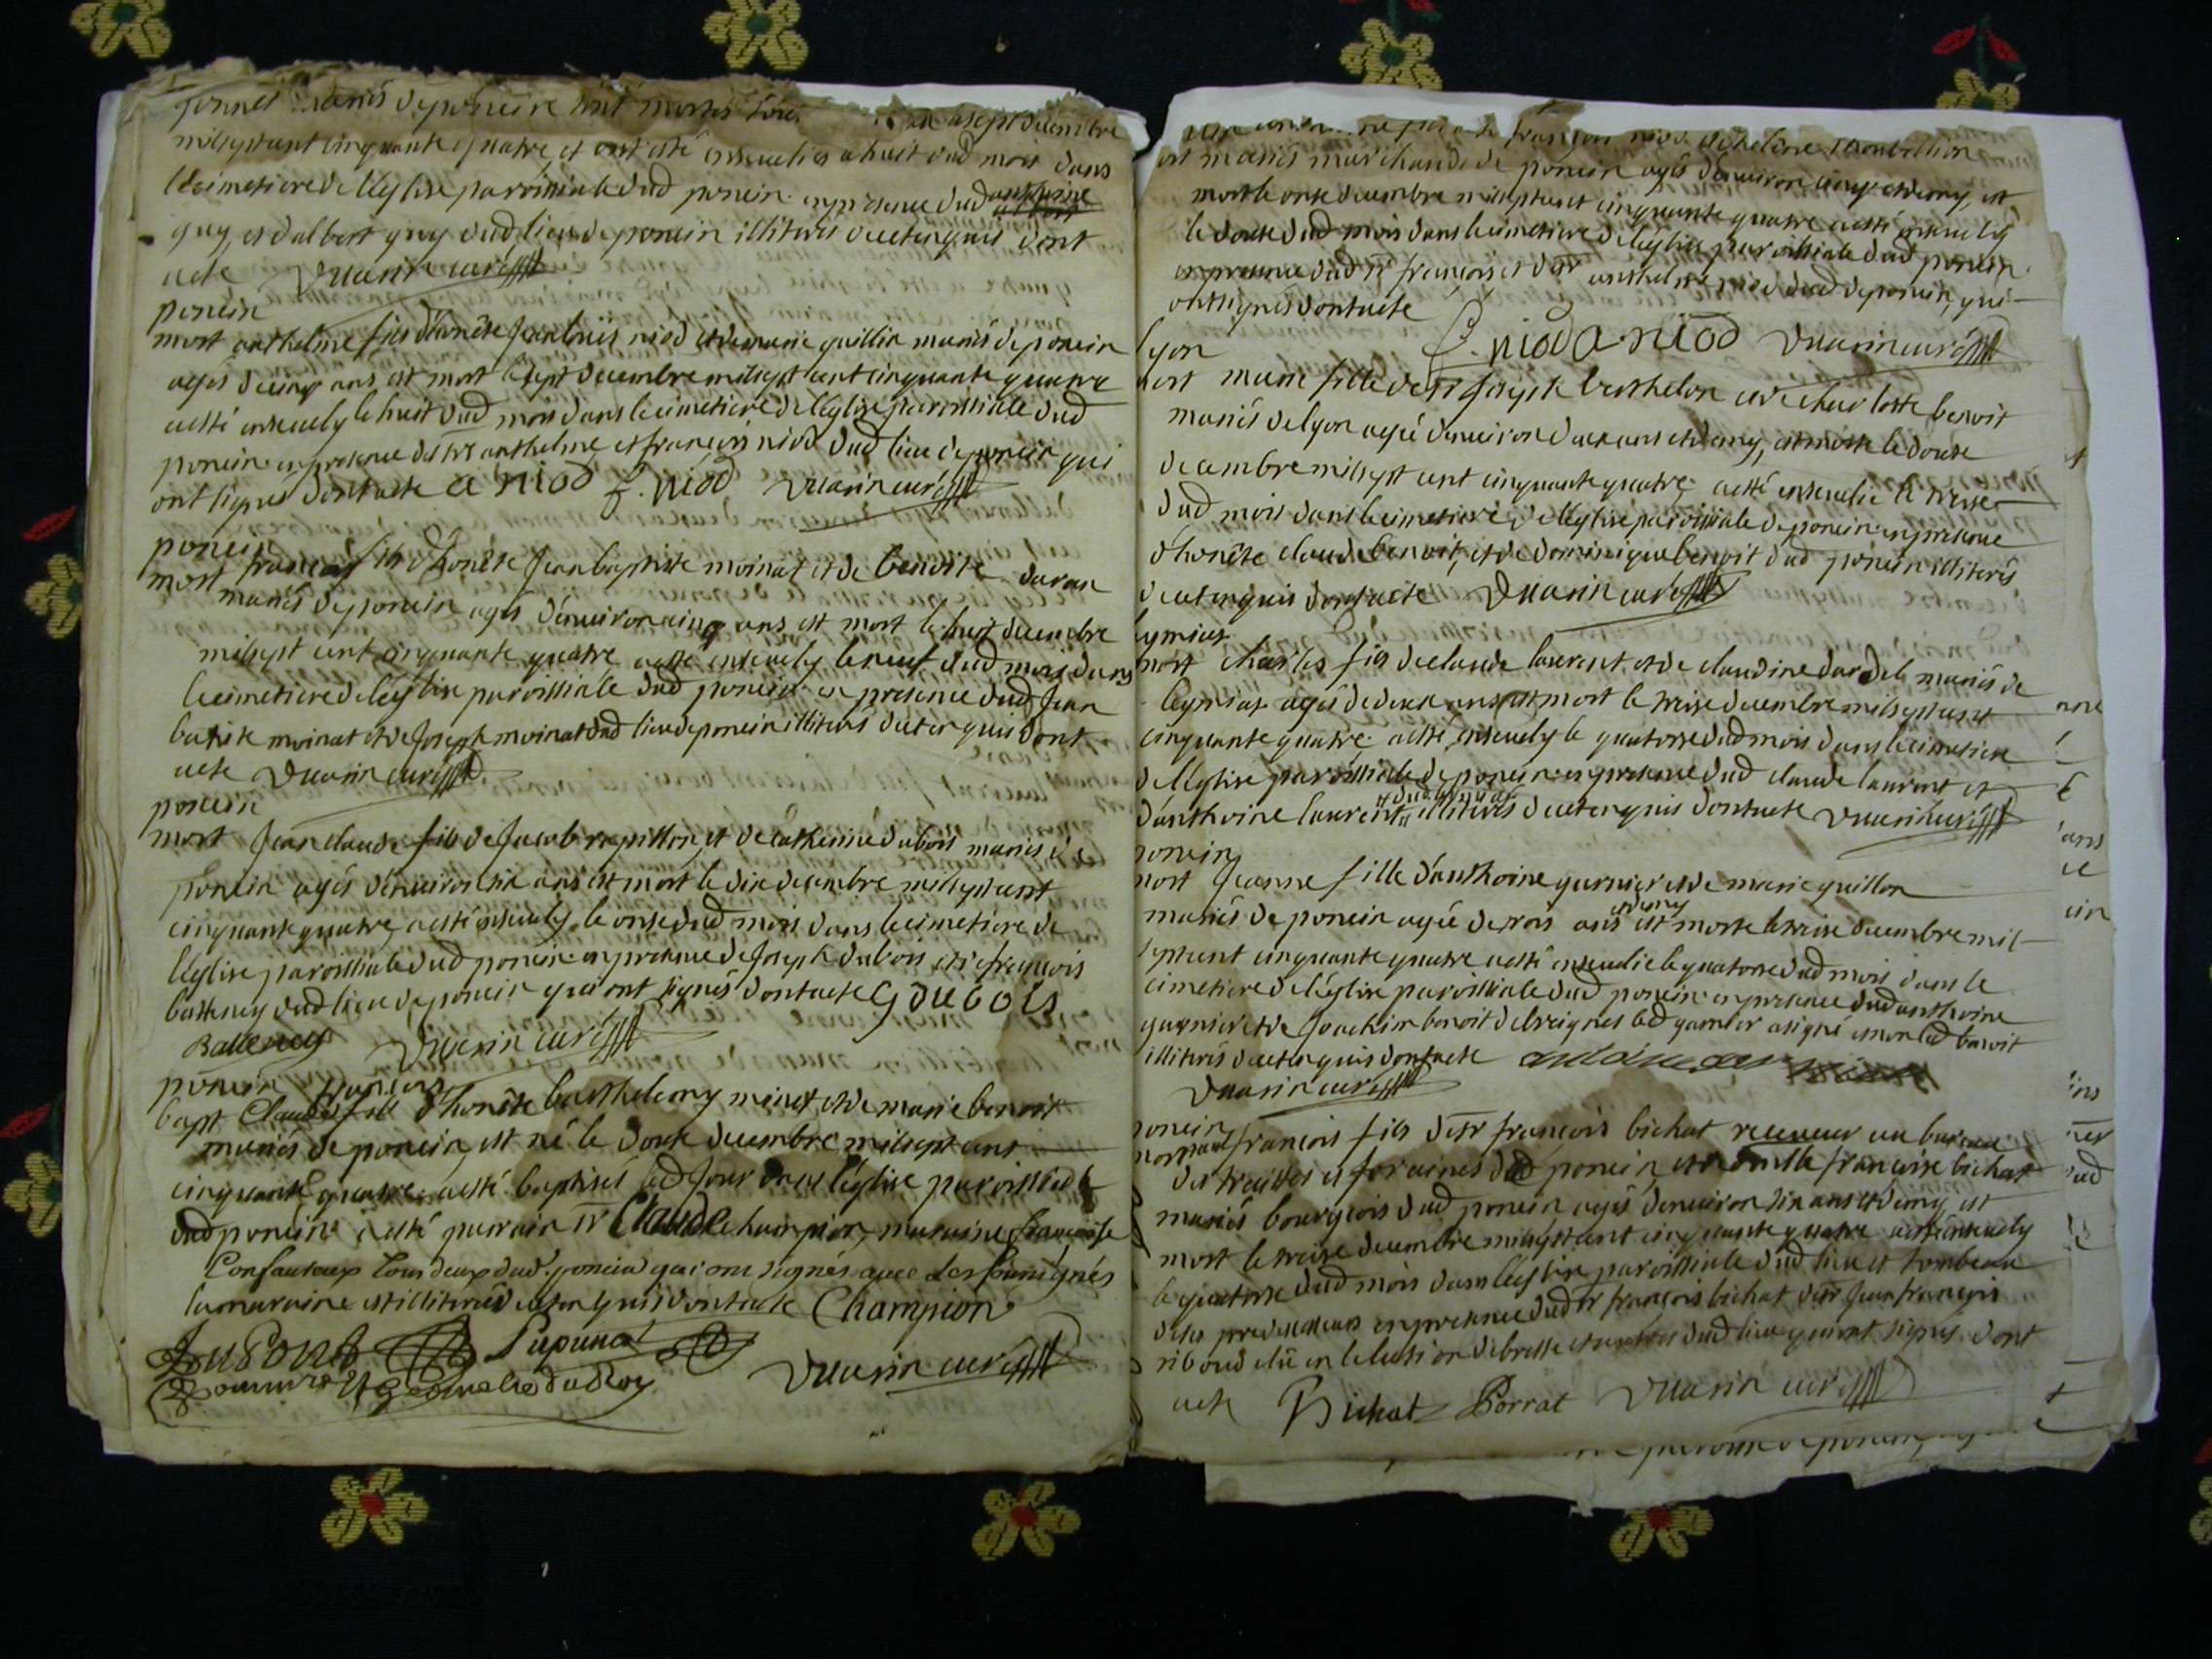 mariés de poncin sont morts a sept decembre
milsept cent cinquante quatre et ont esté ensevelies a huit dud mois dans
le cimetiere de l'eglise paroissiale dud poncin en presence dud anthoine
guy, et d'albert guy dud lieu de poncin illiterés de ce enquis dont
acte Duarin curé
poncin
mort anthelme fils d'honête Jean louis niod et de marie guillin mariés de poncin
agés de cinq ans est mort le sept decembre milsept cent cinquante quatre
a esté ensevely le huit dud mois dans le cimetiere de l'eglise paroissiale dud
poncin en presence de sr anthelme et francois niod dud lieu de poncin qui
ont signés dont acte a niod f. niod Duarin curé
poncin
mort francois fils d'honête Jean baptiste moinat et de benoite
mariés de poncin agés d'environ cinq ans est mort le huit decembre
milsept cent cinquante quatre a esté ensevely le neuf dud mois dans
le cimetiere de l'eglise paroissiale dud poncin en presence dud Jean
batiste moinat et de Joseph moinat dud lieu de poncin illiterés de ce enquis dont
acte Duarin curé
poncin
mort Jean claude fils de Jacob rapillon, et de catherine dubois mariés de
poncin agés d'environ six ans est mort le dix decembre milsept cent
cinquante quatre, a esté ensevely le onze dud mois dans le cimetiere de
l'eglise paroissiale dud poncin en presence de Joseph dubois et de francois
batteney dud lieu de poncin qui ont signés dont acte G dubois
Duarin curé
poncin francois
bapt Claude fils d'honête barthelemy minet et de marie benoit
mariés de poncin, est né le douze decembre milsept cent
cinquante quatre a esté baptisés led jour dans l'eglise paroissiale
dud poncin a esté parrain sr Claude champion, maraine francoise
tous deux dud. poncin qui ont signés avec les soussignés
la maraine est illiterés de ce enquis dont acte Champion
Duarin curé
francois niod et helene
mariés marchands de poncin agés d'environ cinq et demy, est
mort le onze decembre milsept cent cinquante quatre a esté ensevely
le douze dud mois dans le cimetiere de l'eglise paroissiale dud poncin
en presence dud sr francois et de sr anthelme niod dud de poncin, qui
ont signés dont acte
f. niod a. niod Duarin curé
lyon
mort marie fille de sr Joseph berthelon et de charlotte benoit
mariés de lyon agée d'environ deux ans et demy, est morte le douze
decembre milsept cent cinquante quatre, a esté ensevelie le treize
dud mois dans le cimetiere de l'eglise paroissiale de poncin en presence
d'honête claude benoit, et de dominique benoit dud poncin illiterés
de ce enquis dont acte Duarin curé
leymiat
mort charles fils de claude laurent et de claudine mariés de
leymiat agés de deux ans est mort le treize decembre milsept cent
cinquante quatre a esté ensevely le quatorze dud mois dans le cimetiere
de l'eglise paroissiale de poncin en presence dud claude laurent et
d'anthoine laurent et dud leymiat illiterés de ce enquis dont acte Duarin curé
poncin
mort Jeanne fille d'anthoine garnier et de marie guillon
mariés de poncin agée de trois ans et demy est morte le treize decembre mil
sept cent cinquante quatre a esté ensevelie le quatorze dud mois dans le
cimetiere de l'eglise paroissiale dud poncin en presence dud anthoine
garnier et de Joachim benoit led garnier a signé et non led benoit
illiterés de ce enquis dont acte
Duarin curé
poncin
mort francois fils de sr francois bichat receveur au bureau
des traittes et foraines dud poncin, et de francoise bichat
mariés bourgeois dud poncin agés d'environ six ans et demy, est
mort le treize decembre milsept cent cinquante quatre a esté ensevely
le quatorze dud mois dans l'eglise paroissiale dud lieu et tombeau
de ses predecesseurs en presence dud sr francois bichat de sr Jean francois
riboud elû en l'election de bresse dud lieu qui ont signés dont
acte Bichat Porrat Duarin curé